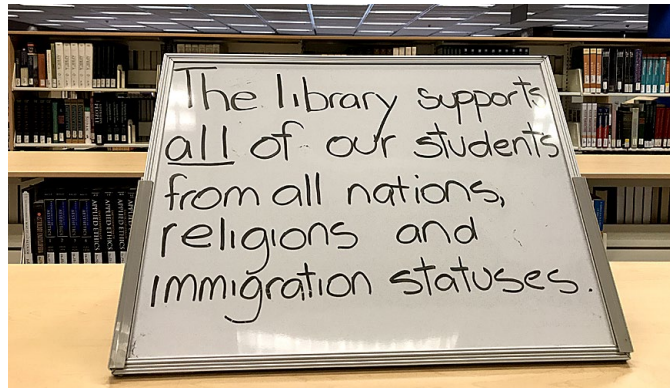 The library supports
all of our students
from all nations,
religions and
immigration statuses.
APPLIED ETHICS
APPLIED ETHICS